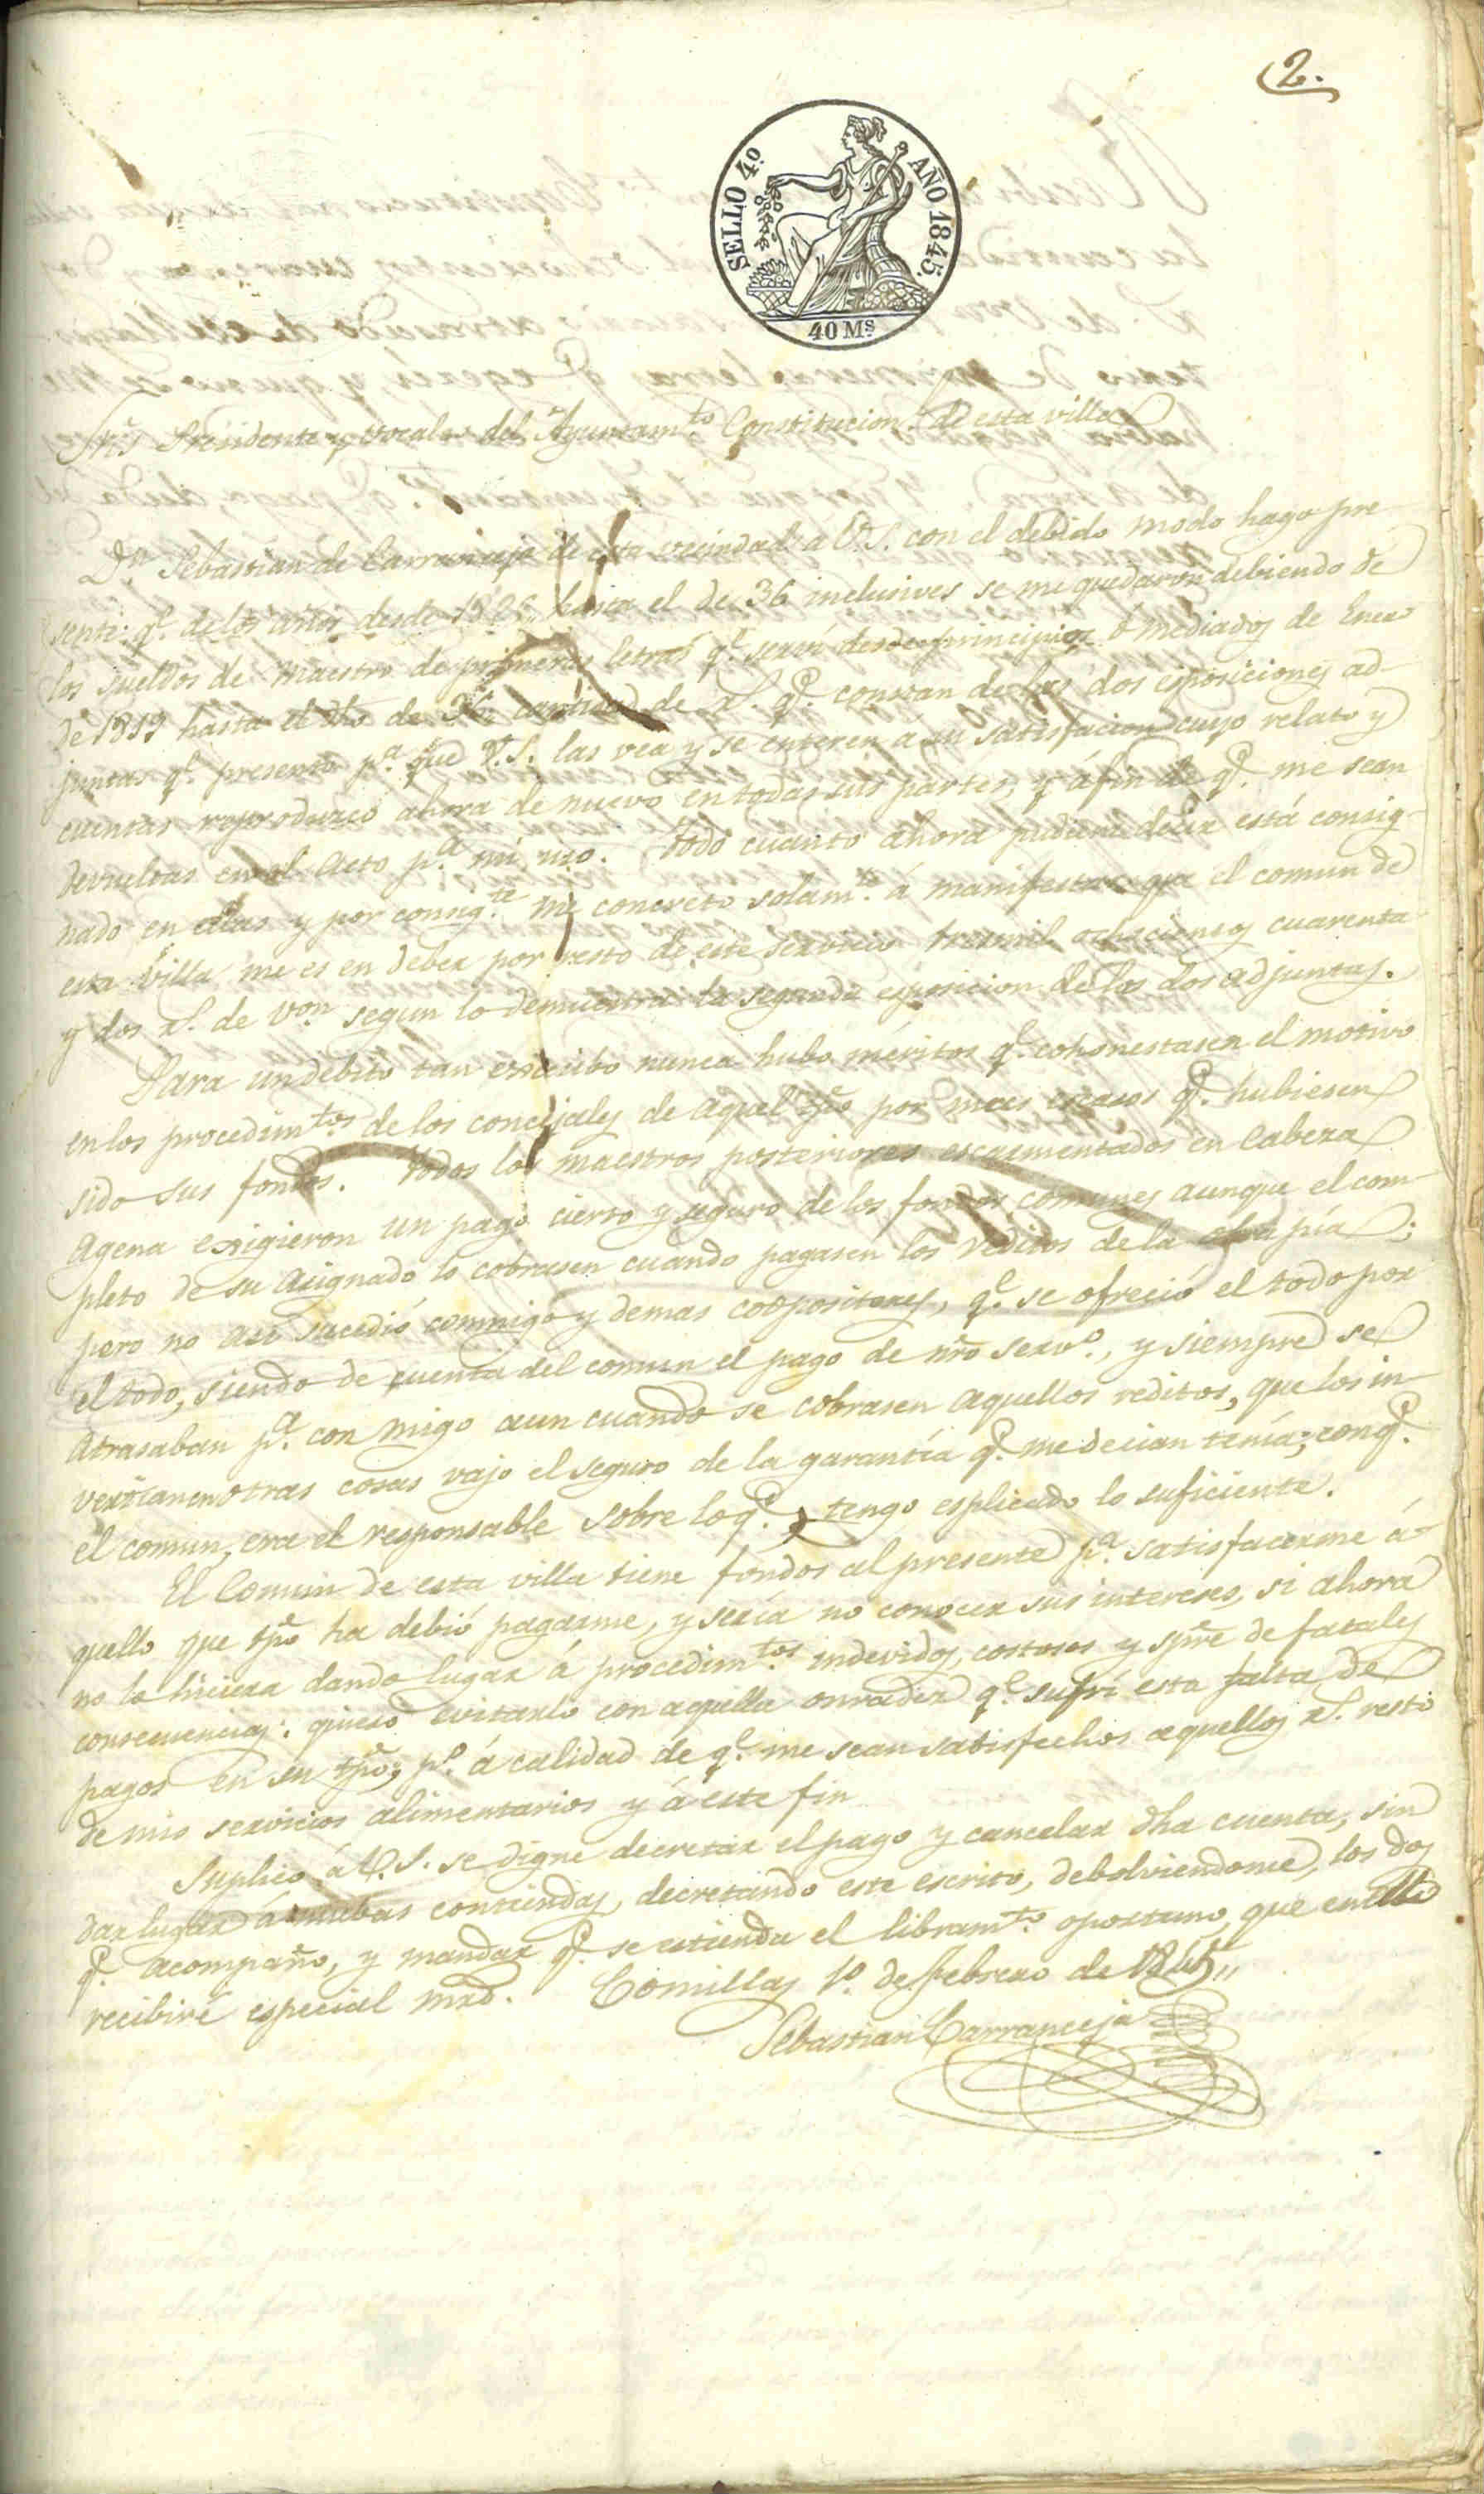 2.
SELLO 4.º AÑO 1845.
40 Ms
Sres Presidente y Vocales del Ayuntam.to Constitucion.l de esta villa
D.n Sebastian de Carranceja de esta vecindad a V.S. con el debido modo hago pre
sente: q.e de los años desde hasta el de 36 inclusives se me quedaron debiendo de
los sueldos de Maestro de primeras letras q.e serví desde principios ó mediados de Enero
de 1819 hasta el dho de 36 cantidad de r.s q.e constan de las dos esposiciones ad-
juntas q.e presento p.a que V.S. las vea y se enteren á su satisfacion cuyo relato y
cuentas reproduzco ahora de nuevo en todas sus partes, y á fin de q.e me sean
devueltas en el acto p.a mi uso. Todo cuanto ahora pudiera decir está consig-
nado en ellas y por consig.te me concreto solam.te á manifestar que el comun de
esta villa me es en deber por resto de este servicio tresmil ochocientos cuarenta
y dos r.s de von segun lo demuestra la segunda esposicion de las dos adjuntas.
Para un debito tan esecibo nunca hubo méritos q.e cohonestasen el motivo
en los procedim.tos de los concejales de aquel tpo por mas escasos q.e hubiesen
sido sus fondos. Todos los maestros posteriores escarmentados en Cabeza
agena exigieron un pago cierto y seguro de los fondos comunes aunque el com-
pleto de su asignado lo cobrasen cuando pagasen los reditos de la obra pía;
pero no asi sucedió conmigo y demas coopositores, q.e se ofreció el todo por
el todo, siendo de cuenta del comun el pago de nro serv.o, y siempre se
atrasaban p.a con migo aun cuando se cobrasen aquellos reditos, que los in-
vertian en otras cosas vajo el seguro de la garantía q.e me decian tenía; con q.e
el comun, era el responsable sobre lo q.e tengo esplicado lo suficiente.
El Comun de esta villa tiene fondos al presente p.a satisfacerme á-
quello que tpo ha debió pagarme, y sería no conocer sus intereses, si ahora
no lo hiciera dando lugar á procedim.tos indevidos, costosos y spre de fatales
consecuencias: quiero evitarlo con aquella onradez q.e sufrí esta falta de
pagos en su tpo; p.o á calidad de q.e me sean satisfechos aquellos r.s resto
de mis servicios alimentarios y á este fin
Suplico á V.S. se digne decretar el pago y cancelar dha cuenta, sin
dar lugar á nuebas contiendas, decretando este escrito, debolviendome, los dos
q.e acompaño, y mandar q.e se estienda el libram.to oportuno, que en ello
recibiré especial mrd. Comillas 1.º de Febrero de 1845,,
Sebastian Carranceja